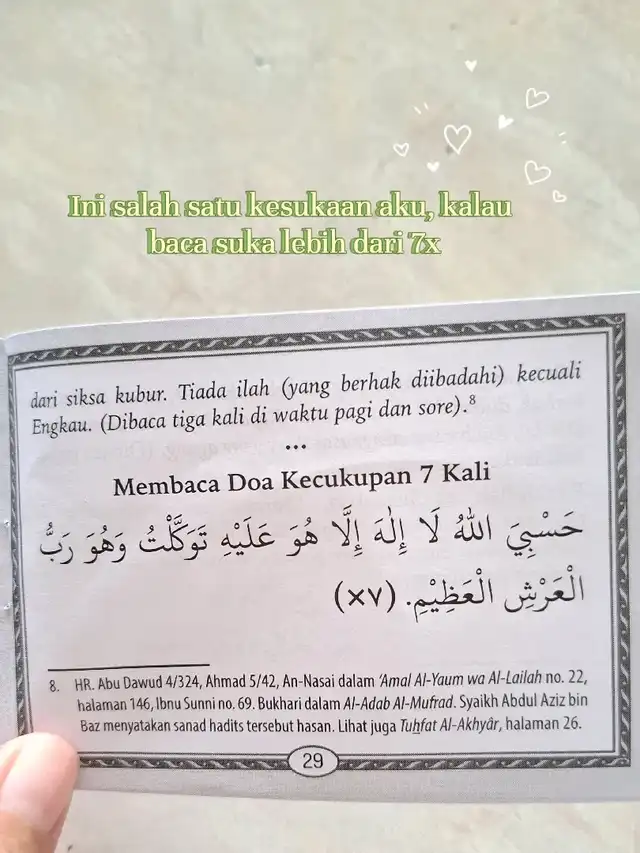 Ini salah satu kesukaan aku, kalau
baca suka lebih dari 7x
dari siksa kubur. Tiada ilah (yang berhak diibadahi) kecuali
Engkau. (Dibaca tiga kali di waktu pagi dan sore).⁸
...
Membaca Doa Kecukupan 7 Kali
حَسْبِيَ اللهُ لَا إِلٰهَ إِلَّا هُوَ عَلَيْهِ تَوَكَّلْتُ وَهُوَ رَبُّ
الْعَرْشِ الْعَظِيْمِ. (٧×)
8. HR. Abu Dawud 4/324, Ahmad 5/42, An-Nasai dalam ‘Amal Al-Yaum wa Al-Lailah no. 22,
halaman 146, Ibnu Sunni no. 69. Bukhari dalam Al-Adab Al-Mufrad. Syaikh Abdul Aziz bin
Baz menyatakan sanad hadits tersebut hasan. Lihat juga Tuḥfat Al-Akhyâr, halaman 26.
29